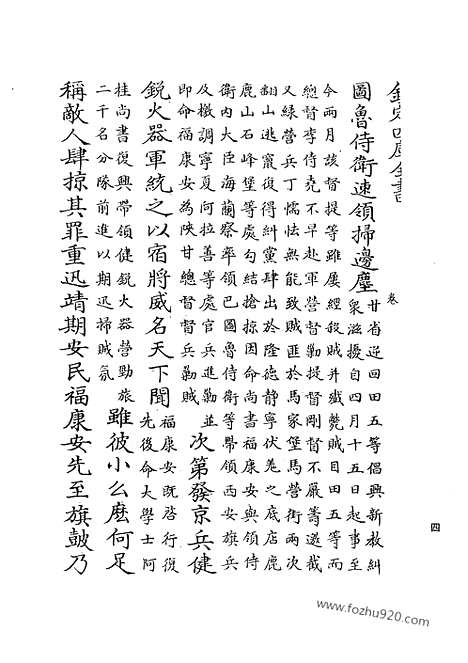 欽定四庫全書
卷
圖魯侍衛速領掃邊塵
甘省逆回田五等倡興新教糾
衆滋擾自四月十五日起事至
今兩月該督提等雖屢經殺賊並殲斃賊目田五等而
總督李侍堯不早赴軍營督勦提督剛塔不嚴籌邀截
又緑營兵丁懦怯無能致賊匪於馬家堡馬營街兩次
翻山逃竄復得糾黨肆出於隆德靜寧伏羌之底店鹿
鹿山石峰堡等處勾結搶掠因命尚書福康安與領侍
衛内大臣海蘭察率領巴圖魯侍衛等帶領西安旗兵
及檄調寧夏阿拉善等處官兵進勦並
即命福康安為陝甘總督督兵勦賊
次第發京兵健
鋭火器軍統之以宿將威名天下聞
福康安既啓行復
先後命大學士阿
桂尚書復興帶領健鋭火器營勁旅
二千名分隊前進以期迅掃賊氛
雖彼小么麽何足
稱敵人肆掠其罪重迅靖期安民福康安先至旗鼓乃
四
www.fozhu920.com